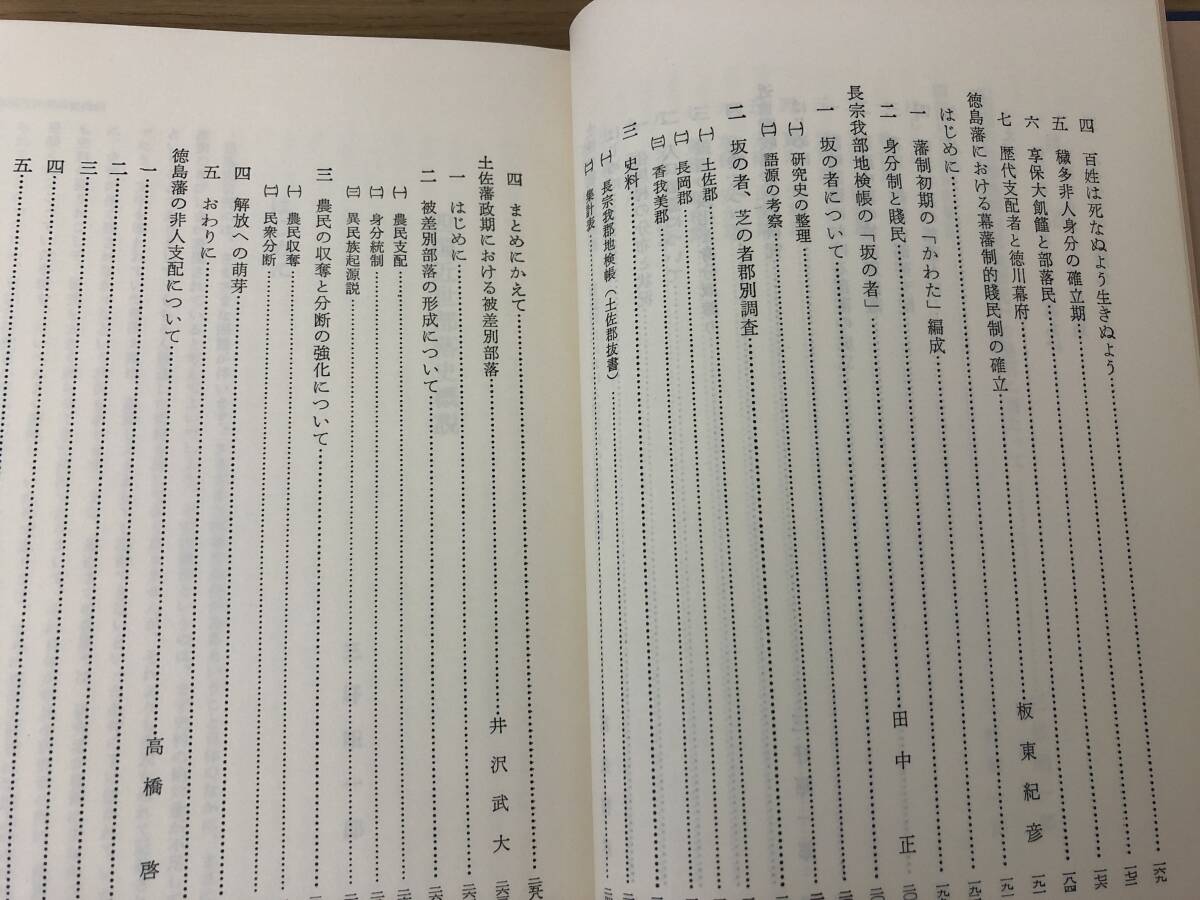 四 百姓は死なぬよう生きぬよう……一六九
五 穢多非人身分の確立期……一七二
六 享保大飢饉と部落民……一七六
七 歴代支配者と徳川幕府……一八四
徳島藩における幕藩制的賤民制の確立……板東紀彦
はじめに
一 藩制初期の「かわた」編成
二 身分制と賤民
長宗我部地検帳の「坂の者」……田中 正
一 坂の者について
㈠ 研究史の整理
㈡ 語源の考察
二 坂の者、芝の者郡別調査
㈠ 土佐郡
㈡ 長岡郡
㈢ 香我美郡
三 史料
㈠ 長宗我部地検帳(土佐郡抜書)
㈡ 集計表
四 まとめにかえて
土佐藩政期における被差別部落……井沢武大
一 はじめに
二 被差別部落の形成について
㈠ 農民支配
㈡ 身分統制
㈢ 異民族起源説
三 農民の収奪と分断の強化について
㈠ 農民収奪
㈡ 民衆分断
四 解放への萌芽
五 おわりに
徳島藩の非人支配について……高橋 啓
一
二
三
四
五